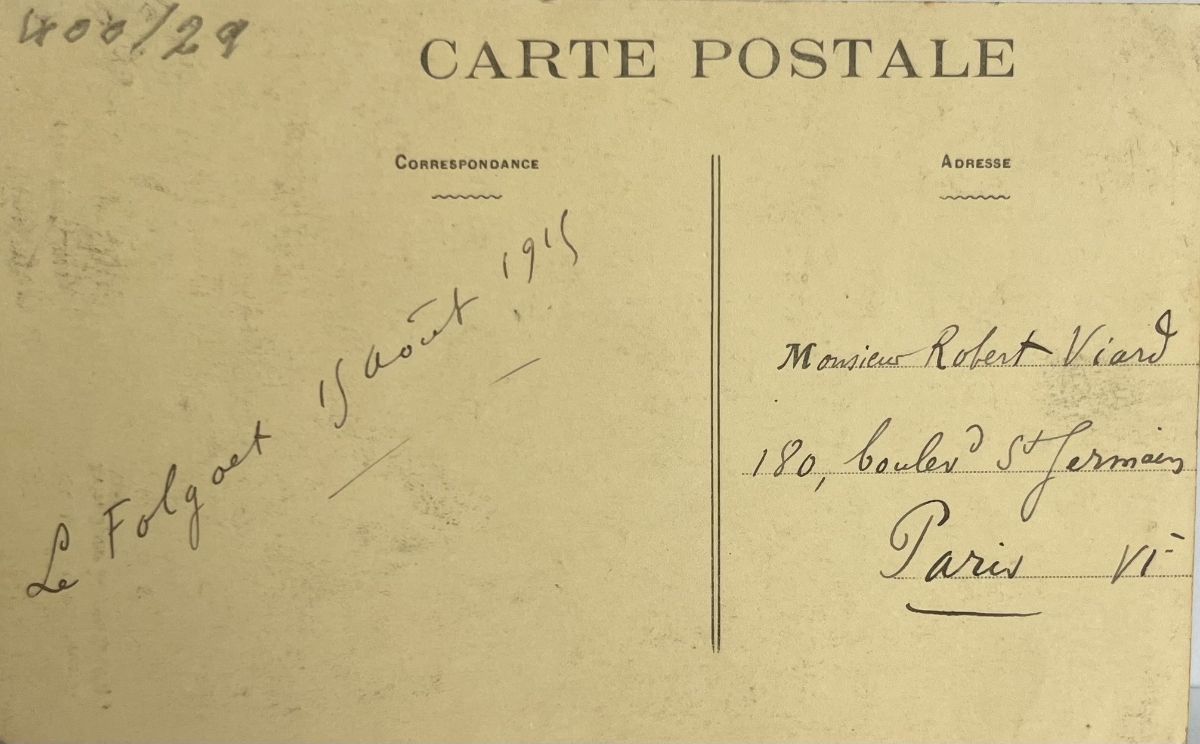 400/29
CARTE POSTALE
CORRESPONDANCE
Le Folgoet 15 Août 1915
ADRESSE
Monsieur Robert Viard
180, boulevd St Germain
Paris VIe